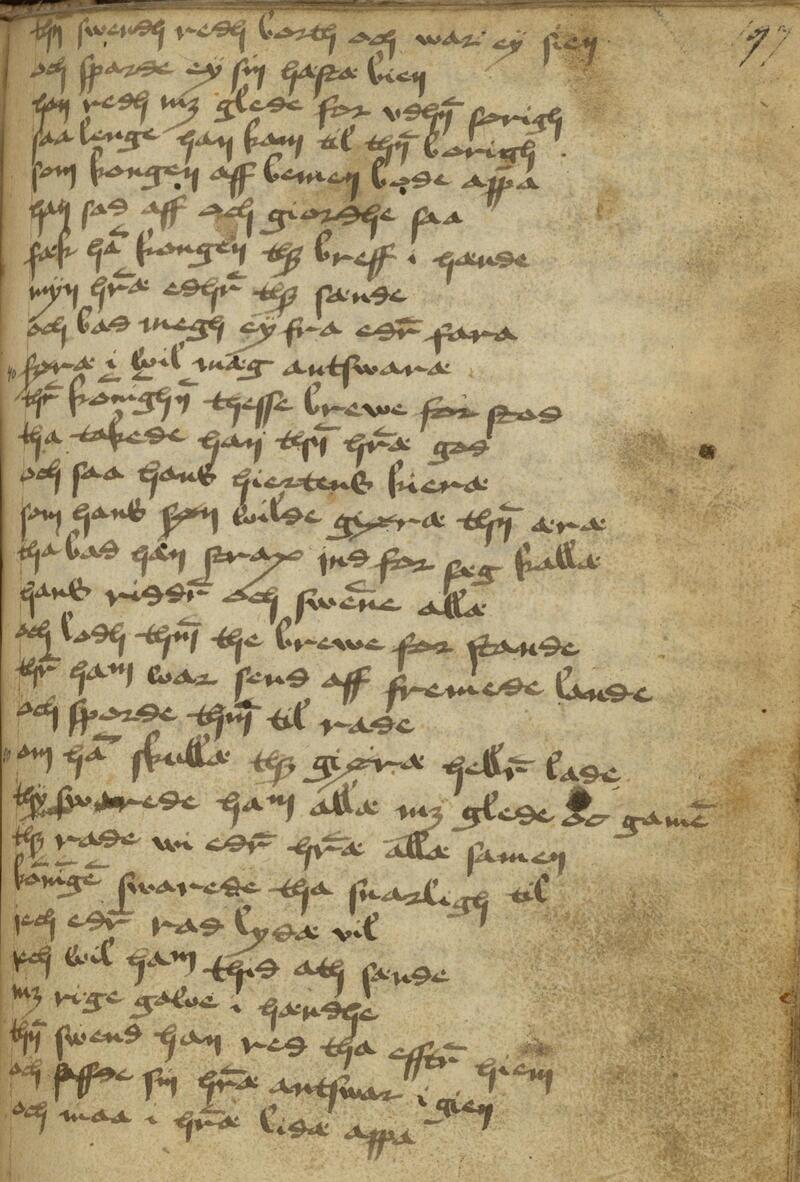 97
thn̄ swendh redh borth och war ey sien
och sparde ey sin hastæ bien
han redh mꝫ glede for vdhn̄ sorigh
saa lenge han kom til thn̄ borigh
som kongen aff bemen bode appa
han sad aff och giordhe saa
fæk hā kongen thꝫ breff i hænde
myn hr̄æ edhr̄ thꝫ sænde
och bad megh ey fra edr̄ fara
føræ i wil mæg antswaræ
thr̄ kōnīghn̄ thesse brewe for stod
tha takede han thn̄ hr̄æ god
och saa hans hiertens kieræ
som hans søn wilde giøræ thn̄ æræ
tha bad han strax ind for sæg kallæ
hans riddr̄ och swēne allæ
och lodh thm̄ the brewe for stande
thr̄ ham war send aff fremede lande
och sporde thm̄ til rade
om hā skullæ thꝫ giøræ hellr̄ lade
thy swarede ham allæ mꝫ glede oc gamē
thꝫ rade wi edr̄ hr̄æ allæ samen
kōnīgē swarede tha snarligh til
iech edr̄ rad lydæ vil
iech wil ham thid ath sænde
mꝫ rige gawe i hændhe
thn̄ swend han red tha efftr̄ hiem
och saffde sin hr̄æ antswar i gien
och maa i hr̄æ lidæ appa